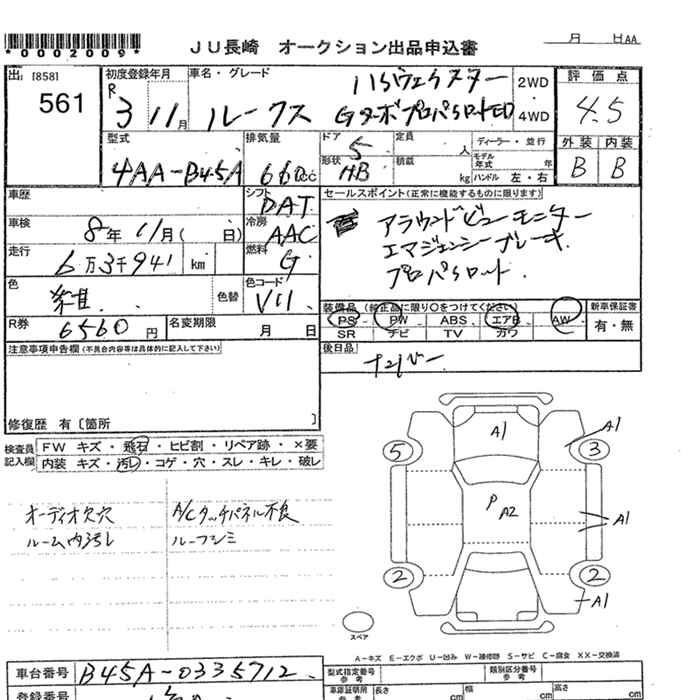 *0002009*
JU長崎 オークション出品申込書
月 日AA
出 [858] 初度登録年月 車名・グレード 2WD 評価点
561 R 3 11月 ルークス ハイウェイスター Gターボプロパイロット ED 4WD 4.5
型式 排気量 ドア 定員 ディーラー・並行 外装 内装
4AA-B45A 660cc 5 人 モデル年式 年 B B
形状 HB 積載 kg ハンドル 左・右
車歴 シフト DAT セールスポイント(正常に機能するものに限ります)
車検 8年11月( 日) 冷房 AAC アラウンドビューモニター
走行 6万3千941 km 燃料 G エマジェンシーブレーキ
プロパイロット
色 色替 色コード
装備品(純正品に限り○をつけてください) 新車保証書
PS PW ABS エアB AW 有・無
SR ナビ TV カワ
R券 6560円 名変期限 月 日
後日品 ナンバー
注意事項申告欄(不具合内容等は具体的に記入して下さい)
修復歴 有〔箇所 〕
検査員記入欄 FW キズ・飛石・ヒビ割・リペア跡・×要
内装 キズ・汚レ・コゲ・穴・スレ・キレ・破レ
オーディオ欠穴 A/Cタッチパネル不良
ルーム内汚レ ルーフシミ
A1 A1
5 3
P A2 A1
2 2
A1
スペア
A-キズ E-エクボ U-凹み W-補修跡 S-サビ C-腐食 XX-交換済
車台番号 B45A-0335712 型式指定番号 参考 類別区分番号 参考
登録番号 車庫証明用 参考 長さ cm 幅 cm 高さ cm